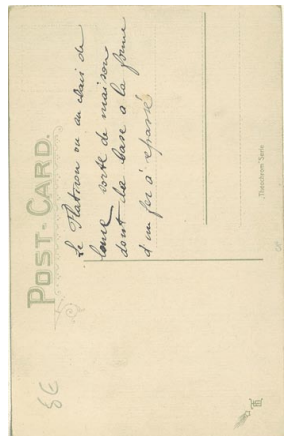 POST-CARD.
Le Flatiron ou au de
sorte de maison
dont la base a la forme
d'un fer à repassé
"Theochrom" Serie